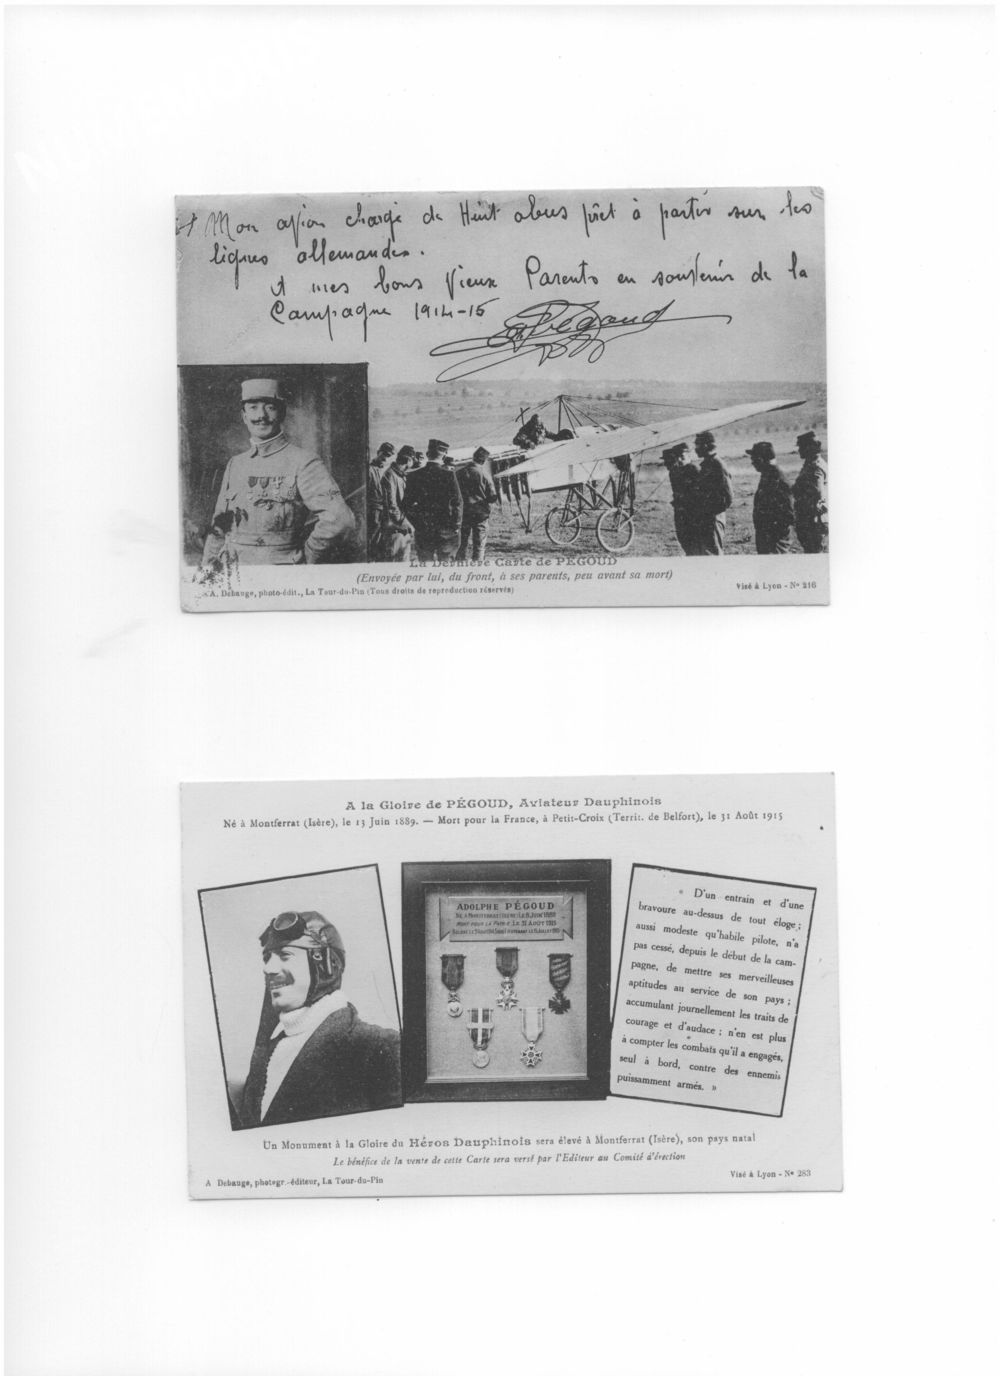 NUMEMORIS
Mon avion chargé de Huit obus prêt à partir sur les
lignes allemandes.
A mes bons Vieux Parents en souvenir de la
Campagne 1914-15
Pégoud
La Dernière Carte de PÉGOUD
(Envoyée par lui, du front, à ses parents, peu avant sa mort)
A. Debauge, photo-édit., La Tour-du-Pin (Tous droits de reproduction réservés)
Visé à Lyon - N° 216
A la Gloire de PÉGOUD, Aviateur Dauphinois
Né à Montferrat (Isère), le 13 Juin 1889. — Mort pour la France, à Petit-Croix (Territ. de Belfort), le 31 Août 1915
ADOLPHE PÉGOUD
NÉ A MONTFERRAT (ISÈRE) LE 13 JUIN 1889
MORT POUR LA PATRIE LE 31 AOUT 1915
« D'un entrain et d'une
bravoure au-dessus de tout éloge ;
aussi modeste qu'habile pilote, n'a
pas cessé, depuis le début de la cam-
pagne, de mettre ses merveilleuses
aptitudes au service de son pays ;
accumulant journellement les traits de
courage et d'audace ; n'en est plus
à compter les combats qu'il a engagés,
seul à bord, contre des ennemis
puissamment armés. »
Un Monument à la Gloire du Héros Dauphinois sera élevé à Montferrat (Isère), son pays natal
Le bénéfice de la vente de cette Carte sera versé par l'Editeur au Comité d'érection
A Debauge, photogr.-éditeur, La Tour-du-Pin
Visé à Lyon - N° 283